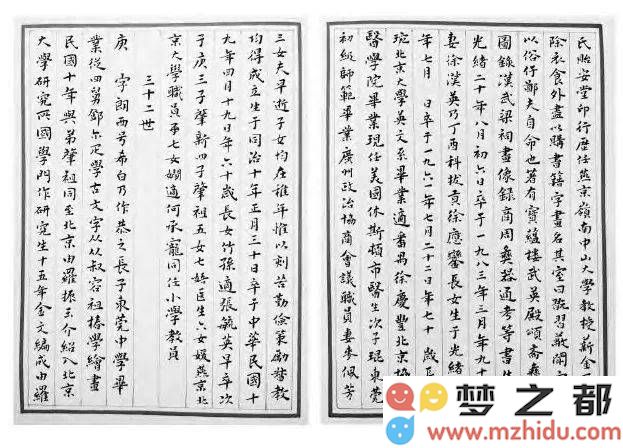 三女夫早逝子女均在稚年惟以刻苦勤儉策勵督教
均得成立生于同治十年正月三十日卒于中華民國十
九年四月十九日年六十歲長女竹孫適張毓英早卒次
子庚三子肇新四子肇祖五女七 醫生六女媛燕京北
京大學職員 七女嫺適何承寵同任小學教員
三十二世
庚 字頌西号希白乃作恭之長子東莞中學畢
業從四舅鄧尔疋學古文字从从叔容祖椿學繪畫
民國十年與弟肇祖同至北京由羅振玉介紹入北京
大學研究所國學門作研究生十五年金文編成由羅
氏貽安堂印行歷任燕京嶺南中山大學教授薪金
除衣食外盡以購書籍字畫名其室曰 習
以俗 鄙夫自命也著有寶蘊樓武英殿頌齋彝
圖錄漢武梁祠畫像錄商周彝器通考等書生
光緒二十年八月初六日卒于一九八三年三月九十
妻徐漢英乃丁酉科拔貢徐應鑾長女生于光緒
年七月 日卒于一九六一年七月二十二日年七十 歲長
琬北京大學英文系畢業適番禺徐慶豐北京協
醫學院畢業現任美國休斯頓市醫生次子琨東莞
初級師範畢業廣州政治協商會議職員妻麥佩芳
梦之都
www.mzhidu.com